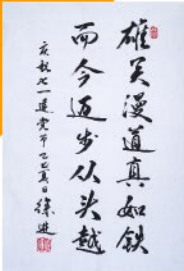 雄关漫道真如铁
而今迈步从头越
庆祝七一建党节乙巳夏日徐进